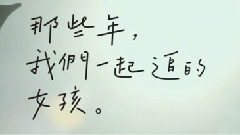 那些年，
我們一起追的
女孩。